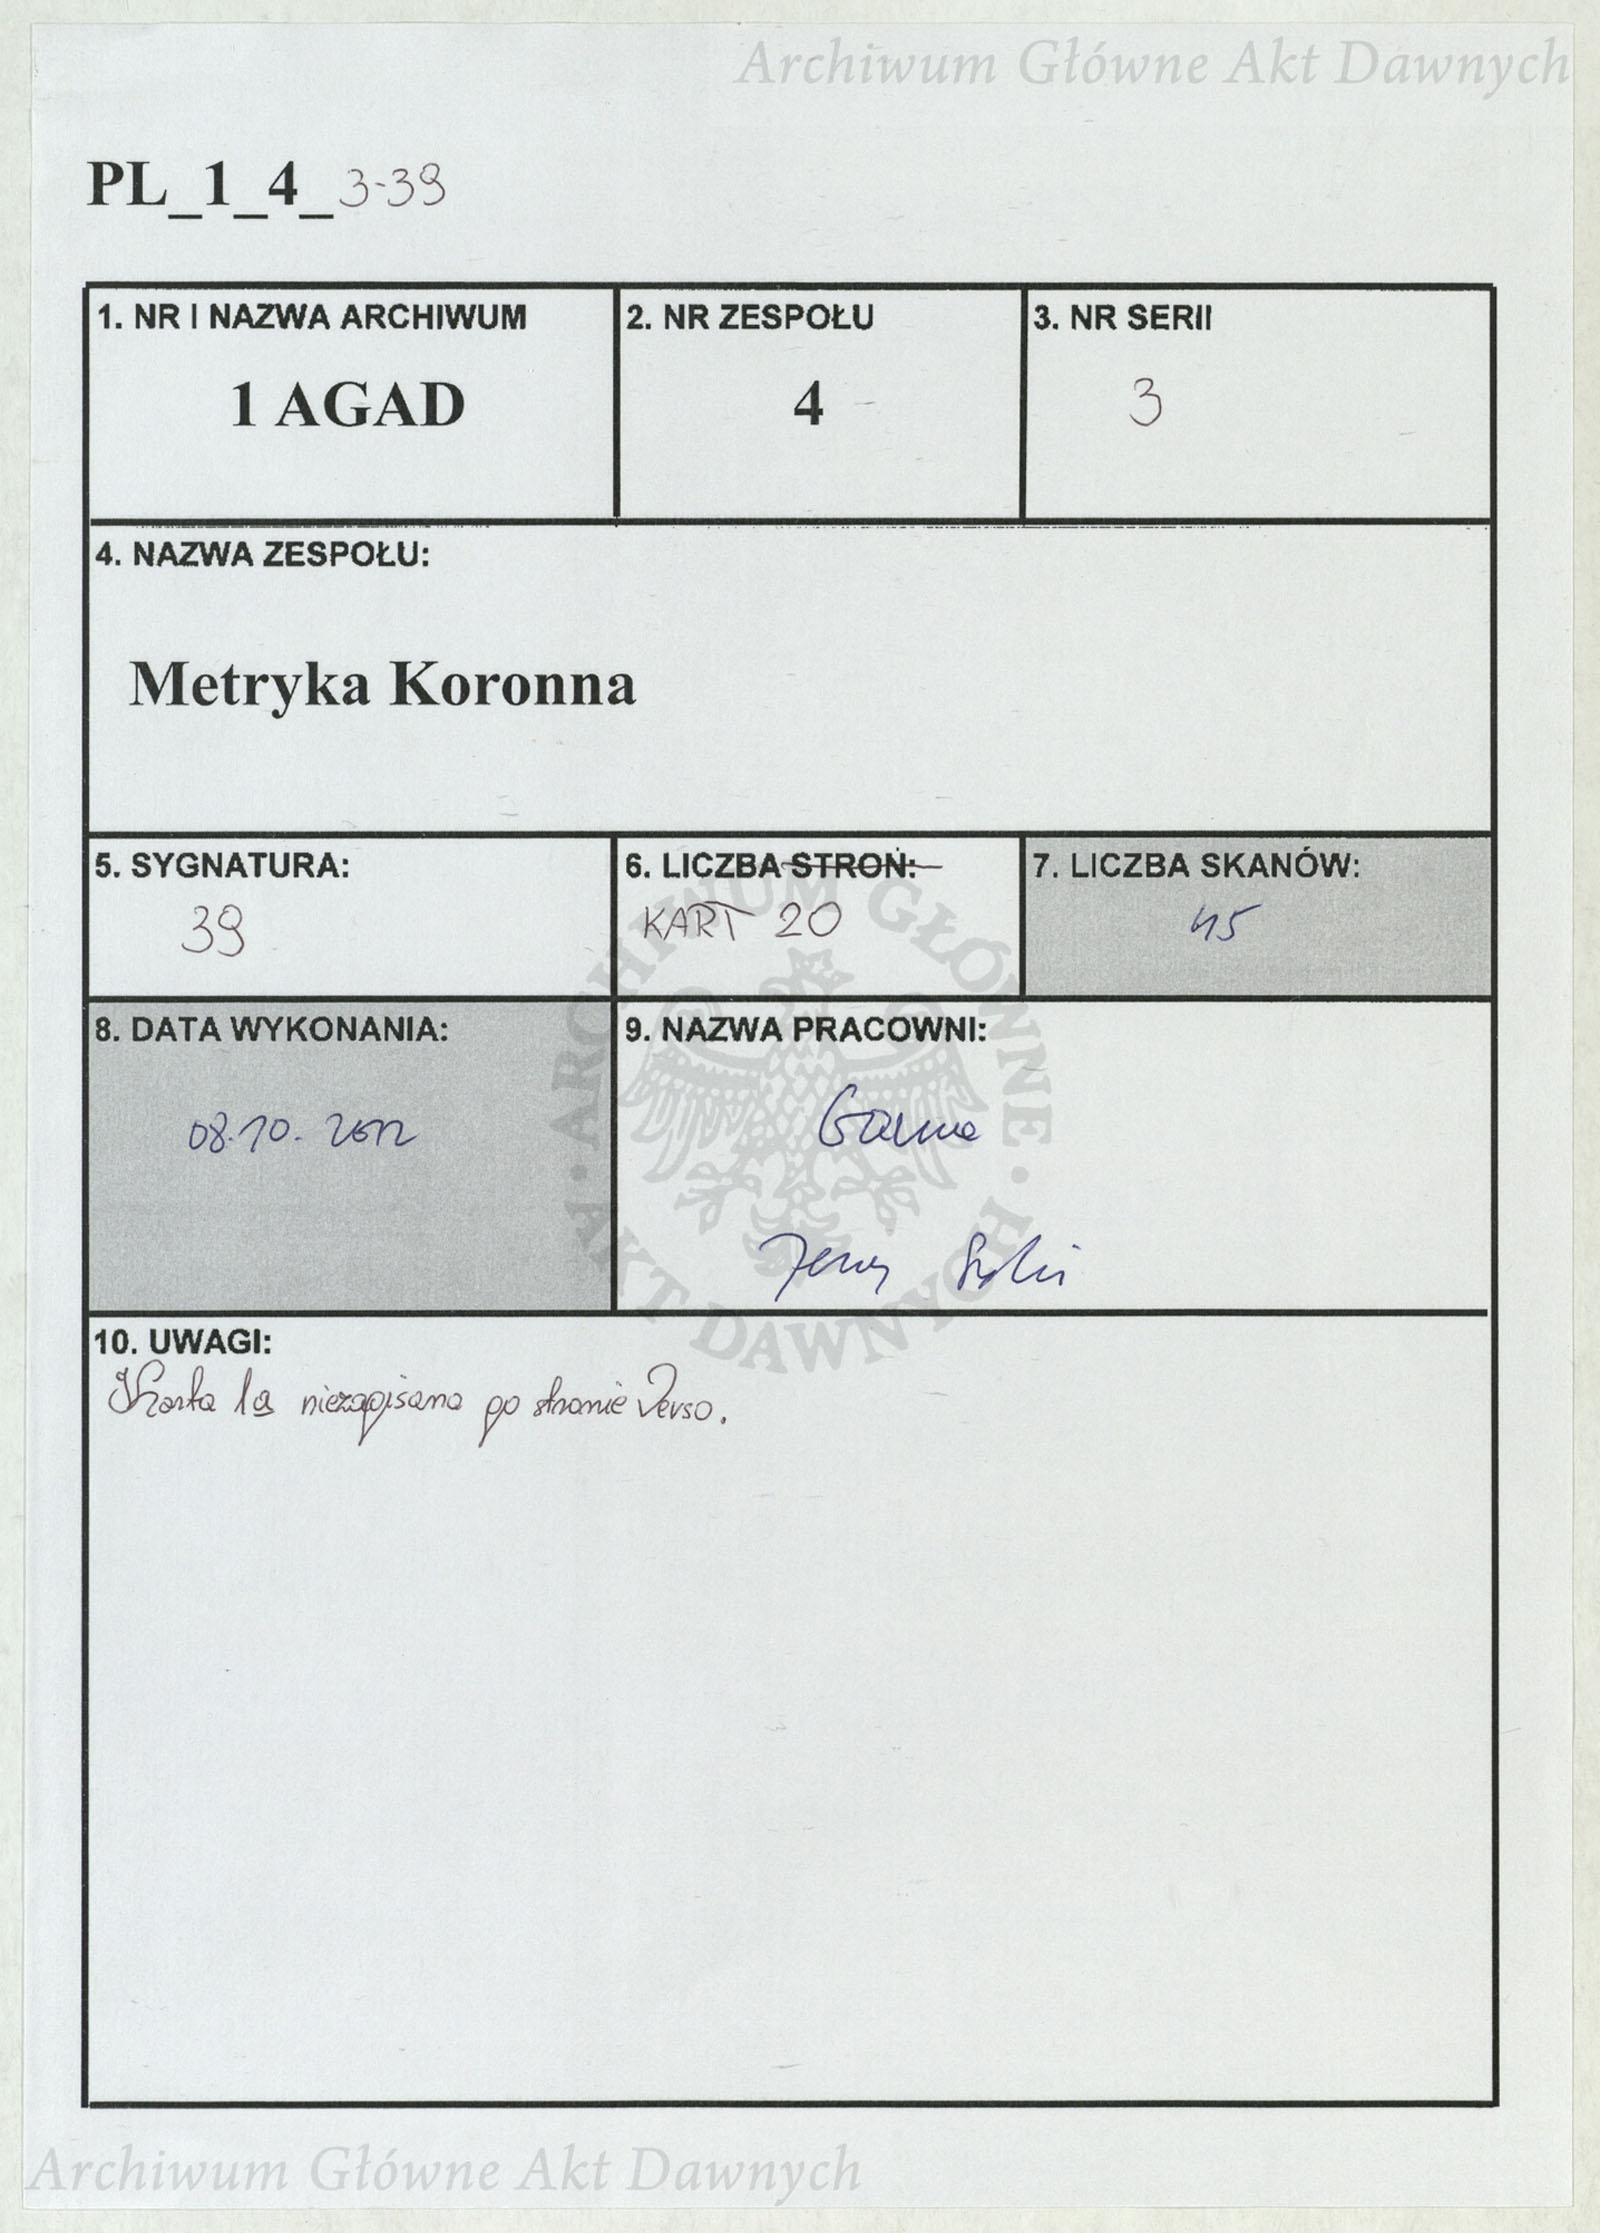 Archiwum Główne Akt Dawnych
PL_1_4_3-39
1. NR I NAZWA ARCHIWUM
1 AGAD
2. NR ZESPOŁU
4
3. NR SERII
3
4. NAZWA ZESPOŁU:
Metryka Koronna
5. SYGNATURA:
39
6. LICZBA STRON:
KART 20
7. LICZBA SKANÓW:
45
8. DATA WYKONANIA:
08.10.2012
9. NAZWA PRACOWNI:
Jerzy
10. UWAGI:
Karta 1a niezapisana po stronie Verso.
ARCHIWUM GŁÓWNE AKT DAWNYCH
Archiwum Główne Akt Dawnych